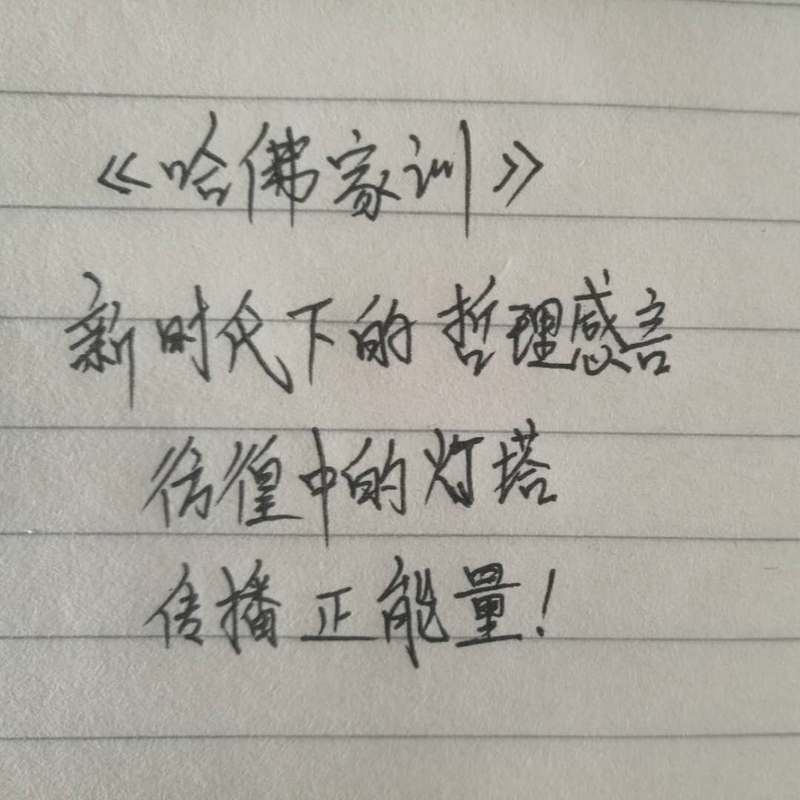 《哈佛家训》
新时代下的哲理感言
彷徨中的灯塔
传播正能量！